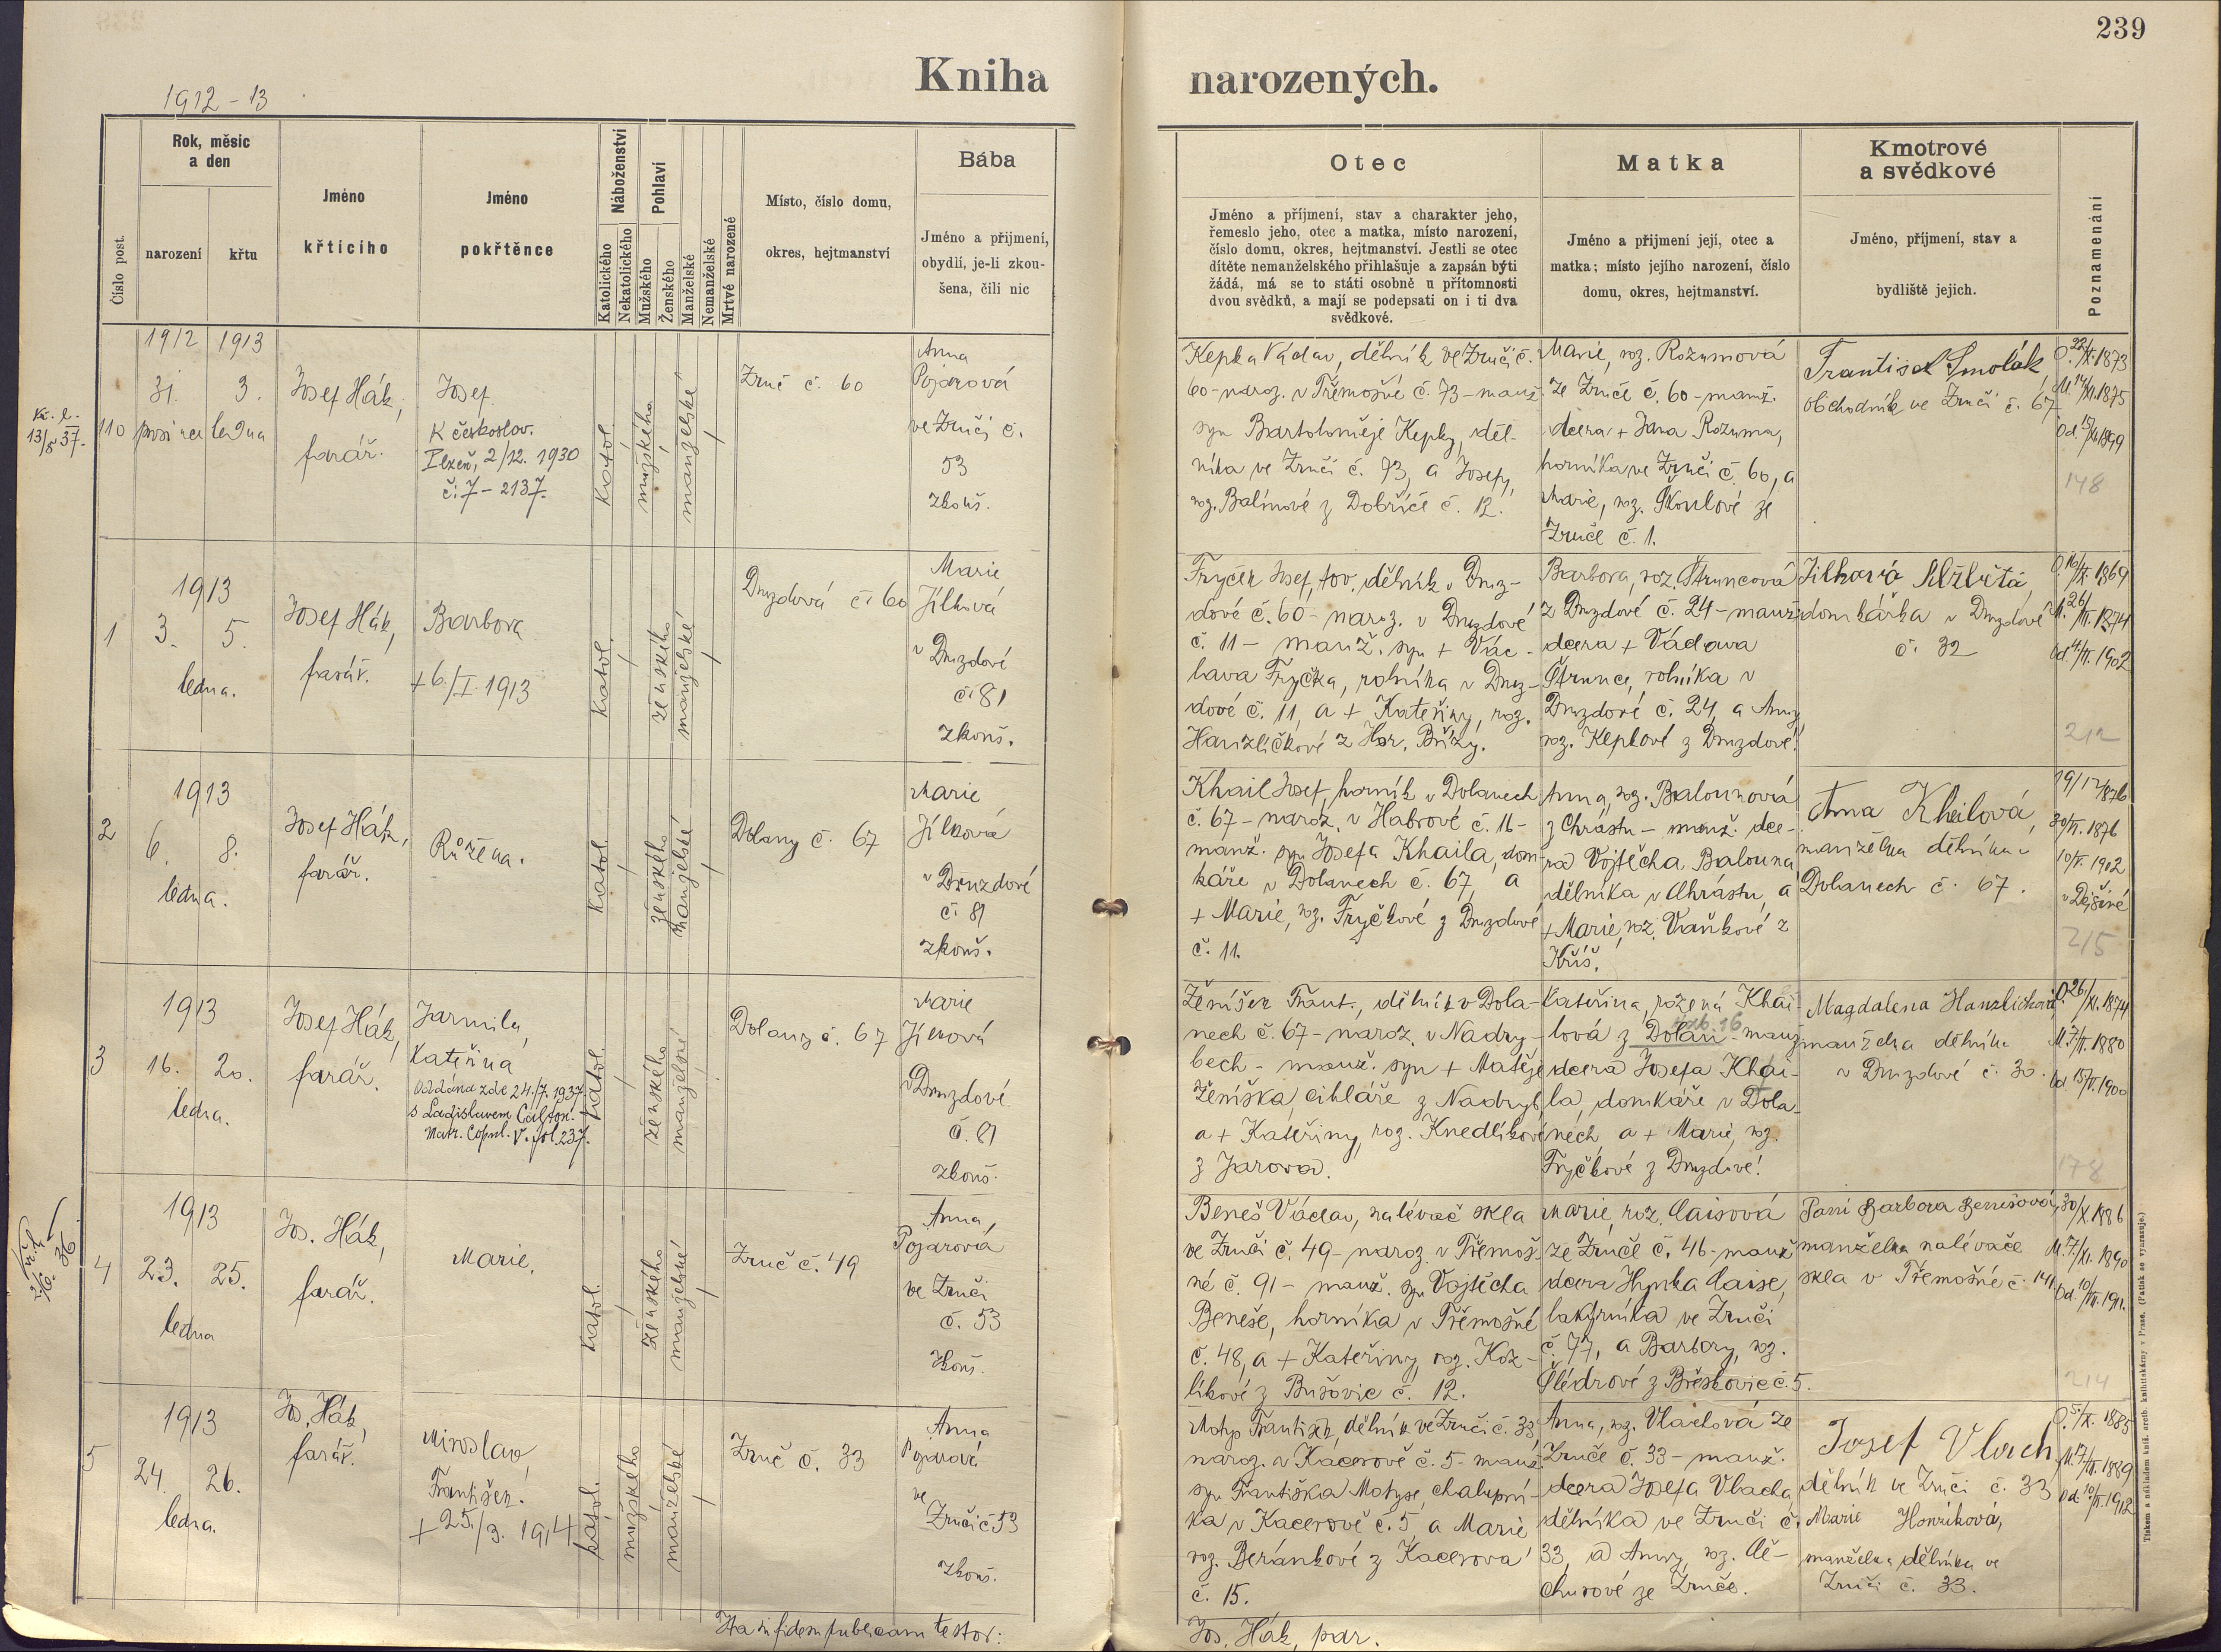 239
Kniha narozených.
1912 - 13
Číslo post.
Rok, měsíc
a den
narození
křtu
Jméno
křtícího
Jméno
pokřtěnce
Náboženství
Katolického
Nekatolického
Pohlaví
Mužského
Ženského
Manželské
Nemanželské
Mrtvé narozené
Místo, číslo domu,
okres, hejtmanství
Bába
Jméno a přijmení,
obydlí, je-li zkou-
šena, čili nic
Otec
Jméno a příjmení, stav a charakter jeho,
řemeslo jeho, otec a matka, místo narození,
číslo domu, okres, hejtmanství. Jestli se otec
dítěte nemanželského přihlašuje a zapsán býti
žádá, má se to státi osobně u přítomnosti
dvou svědků, a mají se podepsati on i ti dva
svědkové.
Matka
Jméno a přijmení její, otec a
matka; místo jejího narození, číslo
domu, okres, hejtmanství.
Kmotrové
a svědkové
Jméno, příjmení, stav a
bydliště jejich.
Poznamenání
Kř. l.
13/5 37.
110
1912 1913
31. 3.
prosince ledna
Josef Hák,
farář.
Josef.
K českoslov.
Plzeň, 2/12. 1930
č: 7 - 2137.
katol.
mužského
manželské
Zruč č. 60
Anna
Pojarová
ve Zruči č.
53
zkouš.
Kepka Václav, dělník ve Zruči č.
60 - naroz. v Třemošné č. 73 - manž.
syn Bartoloměje Kepky, děl-
níka ve Zruči č. 73, a Josefy,
roz. Balínové z Dobříče č. 12.
Marie, roz. Rozumová
ze Zruče č. 60 - manž.
dcera + Jana Rozuma,
horníka ve Zruči č. 60, a
Marie, roz. Škoulové ze
Zruče č. 1.
František Smolák,
obchodník ve Zruči č. 67
O. 22/X. 1873
M. 14/XI. 1875
Od. 1899
148
1
1913
3. 5.
ledna.
Josef Hák,
farář.
Barbora
+ 6./I. 1913
katol.
ženského
manželské
Druzdová č. 60
Marie
Jílková
v Druzdové
č. 81
zkouš.
Fryček Josef, tov. dělník v Druz-
dové č. 60 - naroz. v Druzdové
č. 11 - manž. syn + Vác-
lava Fryčka, rolníka v Druz-
dové č. 11, a + Kateřiny, roz.
Hanzlíčkové z Hor. Břízy.
Barbora, roz. Štruncová
z Druzdové č. 24 - manž.
dcera + Václava
Štrunce, rolníka v
Druzdové č. 24, a Anny,
roz. Kepkové z Druzdové!
Jílková Alžběta,
domkářka v Druzdové
č. 32
O. 16/IX. 1869
M. 26/III. 1874
od. 1902
212
2
1913
6. 8.
ledna.
Josef Hák,
farář.
Růžena.
katol.
ženského
manželské
Dolany č. 67
Marie
Jílková
v Druzdové
č. 81
zkouš.
Khail Josef, horník v Dolanech
č. 67 - naroz. v Habrové č. 16 -
manž. syn Josefa Khaila, dom-
káře v Dolanech č. 67, a
+ Marie, roz. Fryčkové z Druzdové
č. 11.
Anna, roz. Balounová
z Chrástu - manž. dce-
ra Vojtěcha Balouna
dělníka v Chrástu, a
+ Marie, roz. Vraňkové z
Kříš.
Anna Kheilová,
manželka dělníka v
Dolanech č. 67.
19/12 1876
30/VI. 1876
10/V. 1902
v Dejšině
215
3
1913
16. 20.
ledna.
Josef Hák,
farář.
Jarmila,
Kateřina
Oddána zde 24./7. 1937.
s Ladislavem
Matr. Copul. V. fol. 237.
katol.
ženského
manželské
Dolany č. 67
Marie
Jílková
v Druzdové
č. 81
zkouš.
Ženíšek Frant., dělník v Dola-
nech č. 67 - naroz. v Nadry-
bech - manž. syn + Matěje
Ženíška, cihláře z Nadryb,
a + Kateřiny, roz. Knedlíkové
z Jarova.
Kateřina, rozená Khai-
lová z Dolan - manž.
dcera Josefa Khai-
la, domkáře v Dola-
nech, a + Marie, roz.
Fryčkové z Druzdové!
Magdalena Hanzlíčková
manželka dělníka
v Druzdové č. 30.
O. 26/XI. 1874
M. 7/II. 1880
od. 15/VI. 1900
178
4
1913
23. 25.
ledna
Jos. Hák,
farář.
Marie.
katol.
ženského
manželské
Zruč č. 49
Anna,
Pojarová
ve Zruči
č. 53
zkouš.
Beneš Václav, nalévač skla
ve Zruči č. 49 - naroz. v Třemoš-
né č. 91 - manž. syn Vojtěcha
Beneše, horníka v Třemošné
č. 48, a + Kateřiny, roz. Koz-
líkové z Bušovic č. 12.
Marie, roz. Caisová
ze Zruče č. 46 - manž.
dcera Hynka Caise,
lakýrníka ve Zruči
č. 77, a Barbory, roz.
Šlédrové z Břeskovic č. 5.
Paní Barbora Benešová,
manželka nalévače
skla v Třemošné č. 141.
30/X. 1886
M. 7/XI. 1890
Od. 10/VII. 1911.
214
5
1913
24. 26.
ledna.
Jos. Hák,
farář.
Miroslav,
František.
+ 25./3. 1914
katol.
mužského
manželské
Zruč č. 33
Anna
Pojarová
ve
Zruči č 53
zkouš.
Motys František, dělník ve Zruči č. 33,
naroz. v Kacerově č. 5 - manž.
syn Františka Motyse, chalupní-
ka v Kacerově č. 5, a Marie
roz. Beránkové z Kacerova
č. 15.
Anna, roz. Vlachová ze
Zruče č. 33 - manž.
dcera Josefa Vlacha
dělníka ve Zruči č.
33, a Anny, roz. Če-
churové ze Zruče.
Josef Vlach,
dělník ve Zruči č. 33
Marie Honzíková,
manželka dělníka ve
Zruči č. 33.
O. 5/X. 1885
M. 1889
Od. 10/II. 1912
Ita in fidem publicam testor:
Jos. Hák, par.
Tiskem a nákladem kníž. arcib. knihtiskárny v Praze. (Patisk se vyhrazuje.)